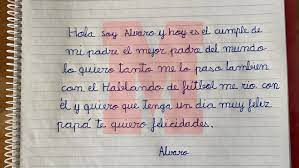 Hola soy Alvaro y hoy es el cumple de
mi padre el mejor padre del mundo
lo quiero tanto me lo paso tambien
con el Hablando de futbol me rio con
él y quiero que tenga un dia muy feliz
papá te quiero felicidades.
Alvaro